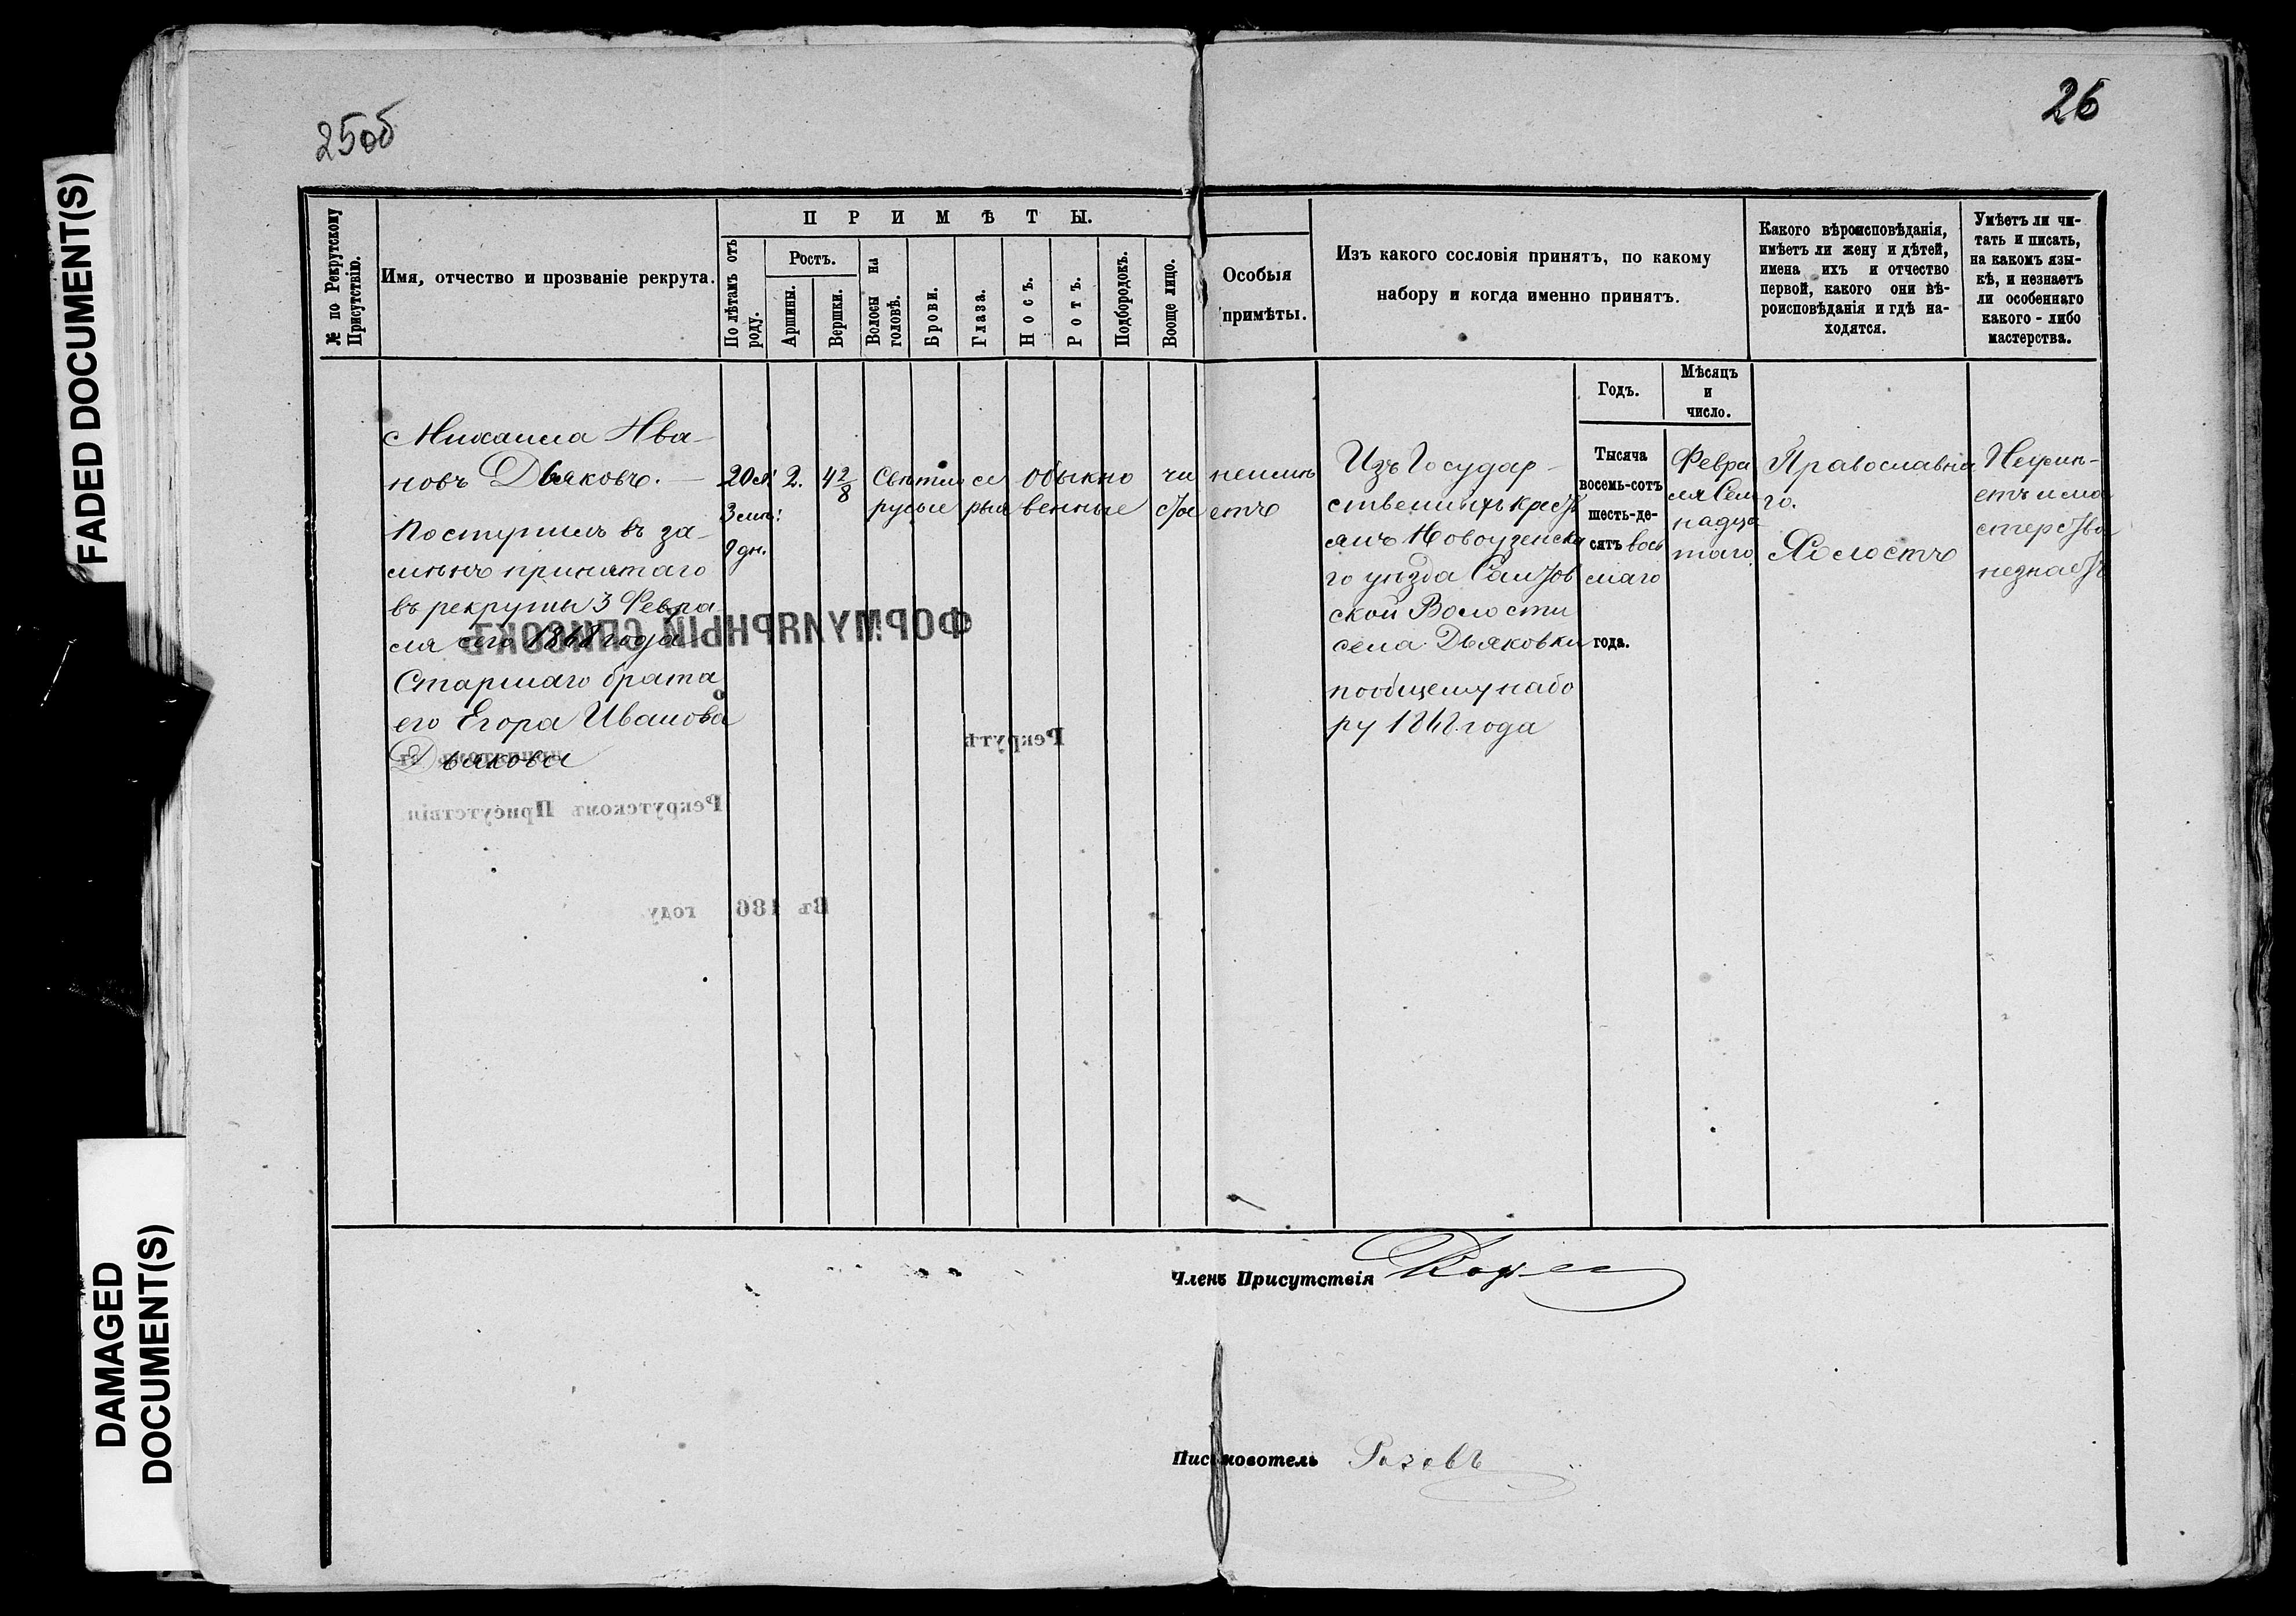 25об
26
FADED DOCUMENT(S)
DAMAGED
DOCUMENT(S)
№ по Рекрутскому
Присутствію.
Имя, отчество и прозваніе рекрута.
ПРИМѢТЫ.
По лѣтамъ отъ
роду.
Ростъ.
Аршины.
Вершки.
Волосы на
головѣ.
Брови.
Глаза.
Носъ.
Ротъ.
Подбородокъ.
Вооще лицо.
Особыя
примѣты.
Изъ какого сословія принятъ, по какому
набору и когда именно принятъ.
Какого вѣроисповѣданія,
имѣетъ ли жену и дѣтей,
имена ихъ и отчество
первой, какого они вѣ-
роисповѣданія и гдѣ на-
ходятся.
Умѣетъ ли чи-
тать и писать,
на какомъ язы-
кѣ, и незнаетъ
ли особеннаго
какого - либо
мастерства.
Годъ.
Мѣсяцъ
и
число.
Михаила Ива-
новъ Дьяковъ. —
Поступилъ въ за-
мѣнъ принятаго
въ рекруты 3 Февра
ля сего 1868 года
Старшаго брата
его Егора Иванова
Дьякова
20 л.
3 мѣ:
9 дн.
2.
4 2/8
Свѣтло
русые
сѣ
рые
обыкно
венные
чи
стое
неимѣ
етъ
Изъ Государ-
ственныхъ крестъ
янъ Новоузенска
го уѣзда Салтов
ской Волости
села Дьяковки
пообщему набо
ру 1868 года
Тысяча
восемь-сотъ
шесть-де-
сятъ вось
маго
года.
Февра
ля Сем
надца
таго
Православна
го.
Холостъ
Неумѣ-
етъ и ма
стерства
незнаетъ
ФОРМУЛЯРНЫЙ СПИСОКЪ
Рекрутъ
Рекрутскомъ Присутствіи
Въ 186 году
Членъ Присутствія
Письмоводитель